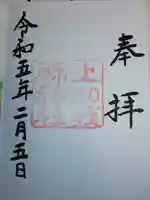 奉拝
令和五年二月五日